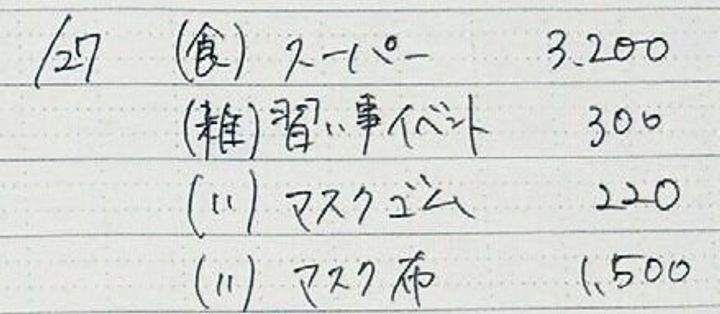 /27 (食) スーパー 3.200
(雑) 習い事イベント 300
(〃) マスクゴム 220
(〃) マスク布 1,500